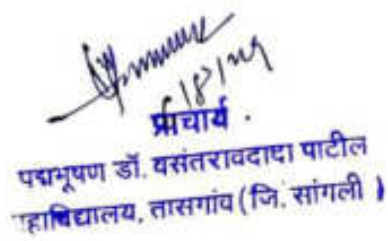 प्राचार्य .
पद्मभूषण डॉ. वसंतरावदादा पाटील
महाविद्यालय, तासगांव (जि. सांगली )